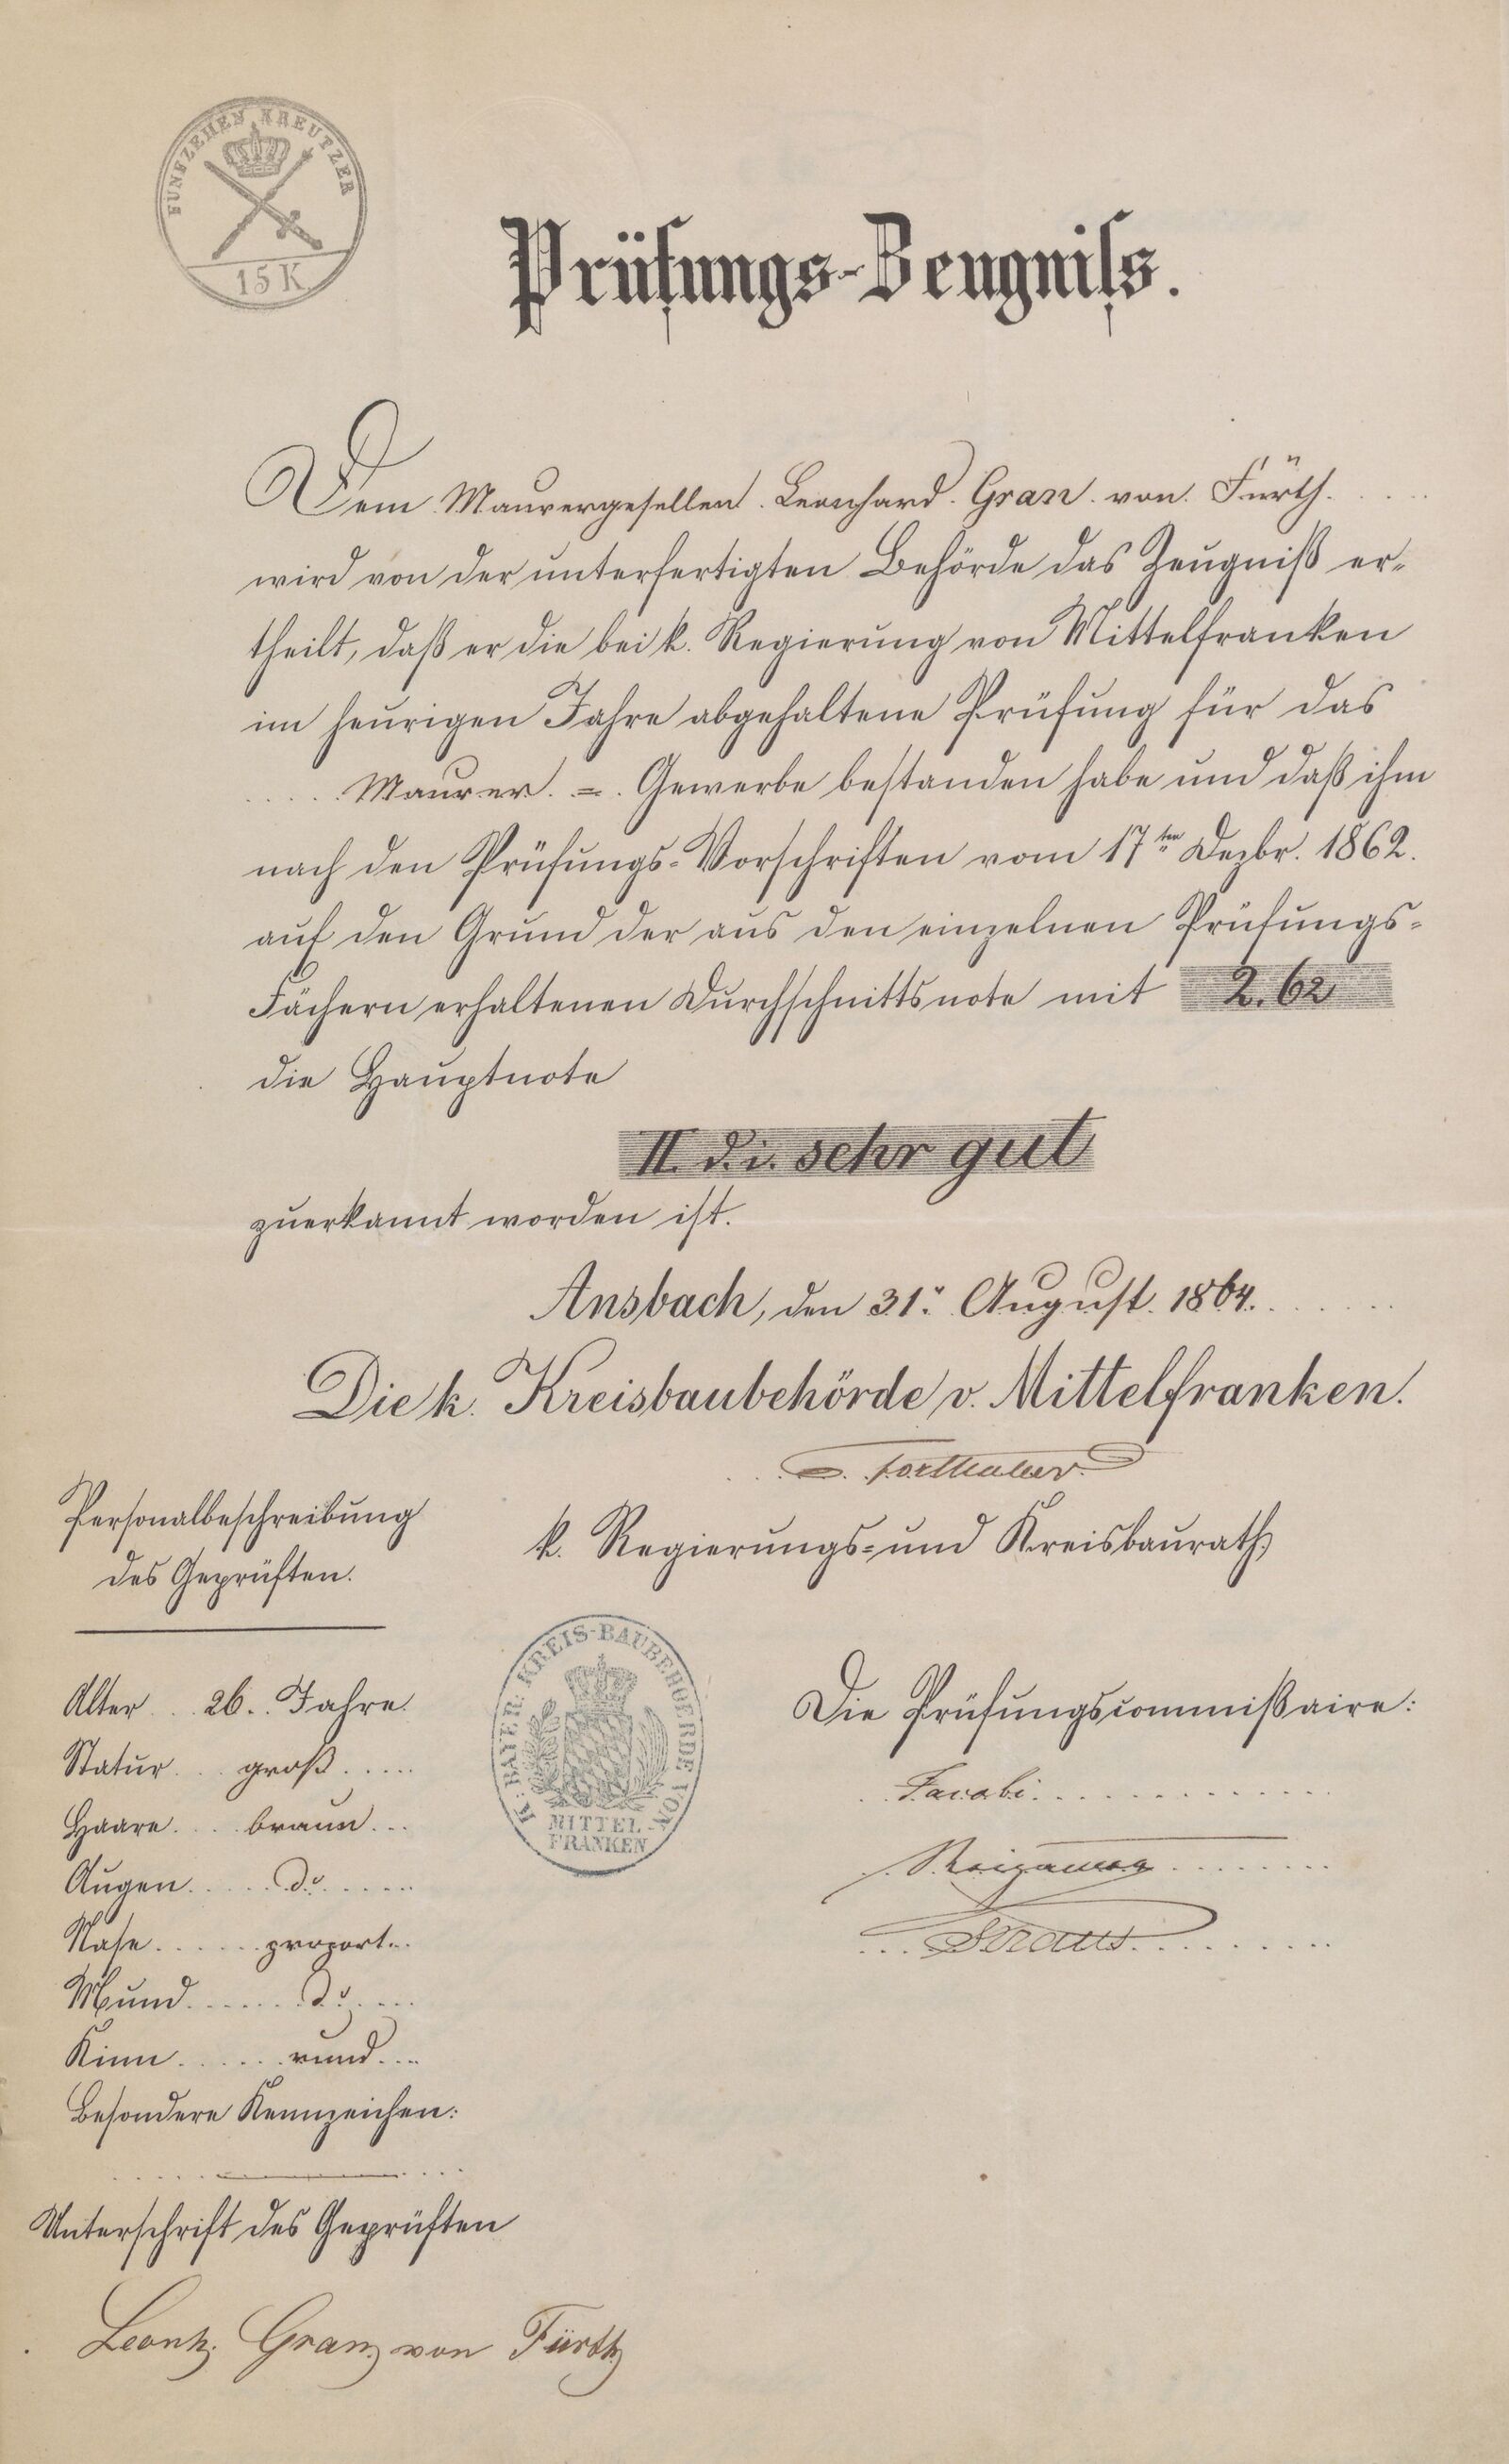 FÜNFZEHEN KREUTZER
15 K
Prüfungs-Zeugniß.
Dem Maurergesellen Leonhard Gran von Fürth
wird von der unterfertigten Behörde das Zeugniß er-
theilt, daß er die bei k. Regierung von Mittelfranken
im heurigen Jahre abgehaltene Prüfung für das
Maurer = Gewerbe bestanden habe und daß ihm
nach den Prüfungs-Vorschriften vom 17ten Dezbr. 1862.
auf den Grund der aus den einzelnen Prüfungs-
Fächern erhaltenen Durchschnittsnote mit 2.62
die Hauptnote
II. d. i. sehr gut
zuerkannt worden ist.
Ansbach, den 31. August 1864.
Die k. Kreisbaubehörde v. Mittelfranken.
k. Regierungs- und Kreisbaurath
Personalbeschreibung
des Geprüften.
Alter 26. Jahre
Statur groß
Haare braun
Augen do
Nase proport.
Mund do
Kinn rund
Besondere Kennzeichen:
K. BAYER. KREIS-BAUBEHOERDE VON
MITTEL-
FRANKEN
Die Prüfungscommißaire:
Jacobi
Straus
Unterschrift des Geprüften
Leonh. Gran von Fürth